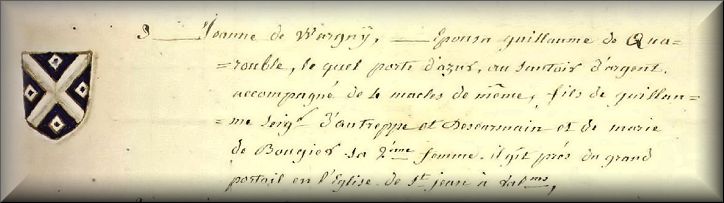 9 ___ Jeanne de Wargnÿ, ___ Epousa guillaume de Qua=
=rouble, le quel porte d'azur, au sautoir d'argent.
accompagné de 4 macles de même, fils de guillau=
=me Seigr d'autreppe et Descarmain et de marie
de Bougier sa 2ème femme. il gît près du grand
portail en l'Eglise de St jean à Val.nes,